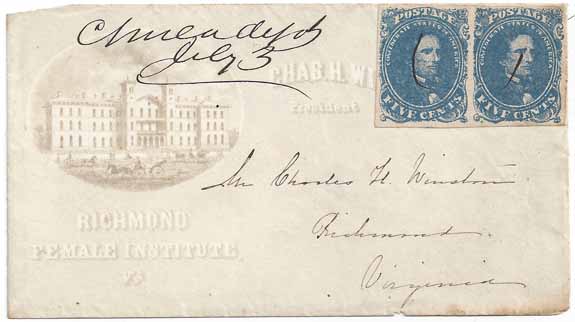 July 3
CHAS. H. WI
President
POSTAGE
CONFEDERATE STATES OF AMERICA
FIVE CENTS
POSTAGE
CONFEDERATE STATES OF AMERICA
FIVE CENTS
Mr Charles H. Winston
Richmond
Virginia
RICHMOND
FEMALE INSTITUTE,
VA